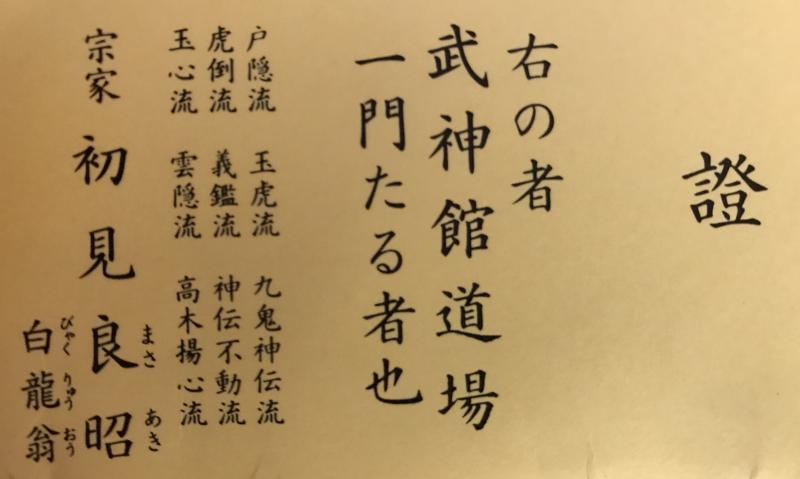 證
右の者
武神館道場
一門たる者也
戸隠流 玉虎流 九鬼神伝流
虎倒流 義鑑流 神伝不動流
玉心流 雲隠流 高木揚心流
宗家 初見良昭
まさ あき
白龍翁
びゃく りゅう おう